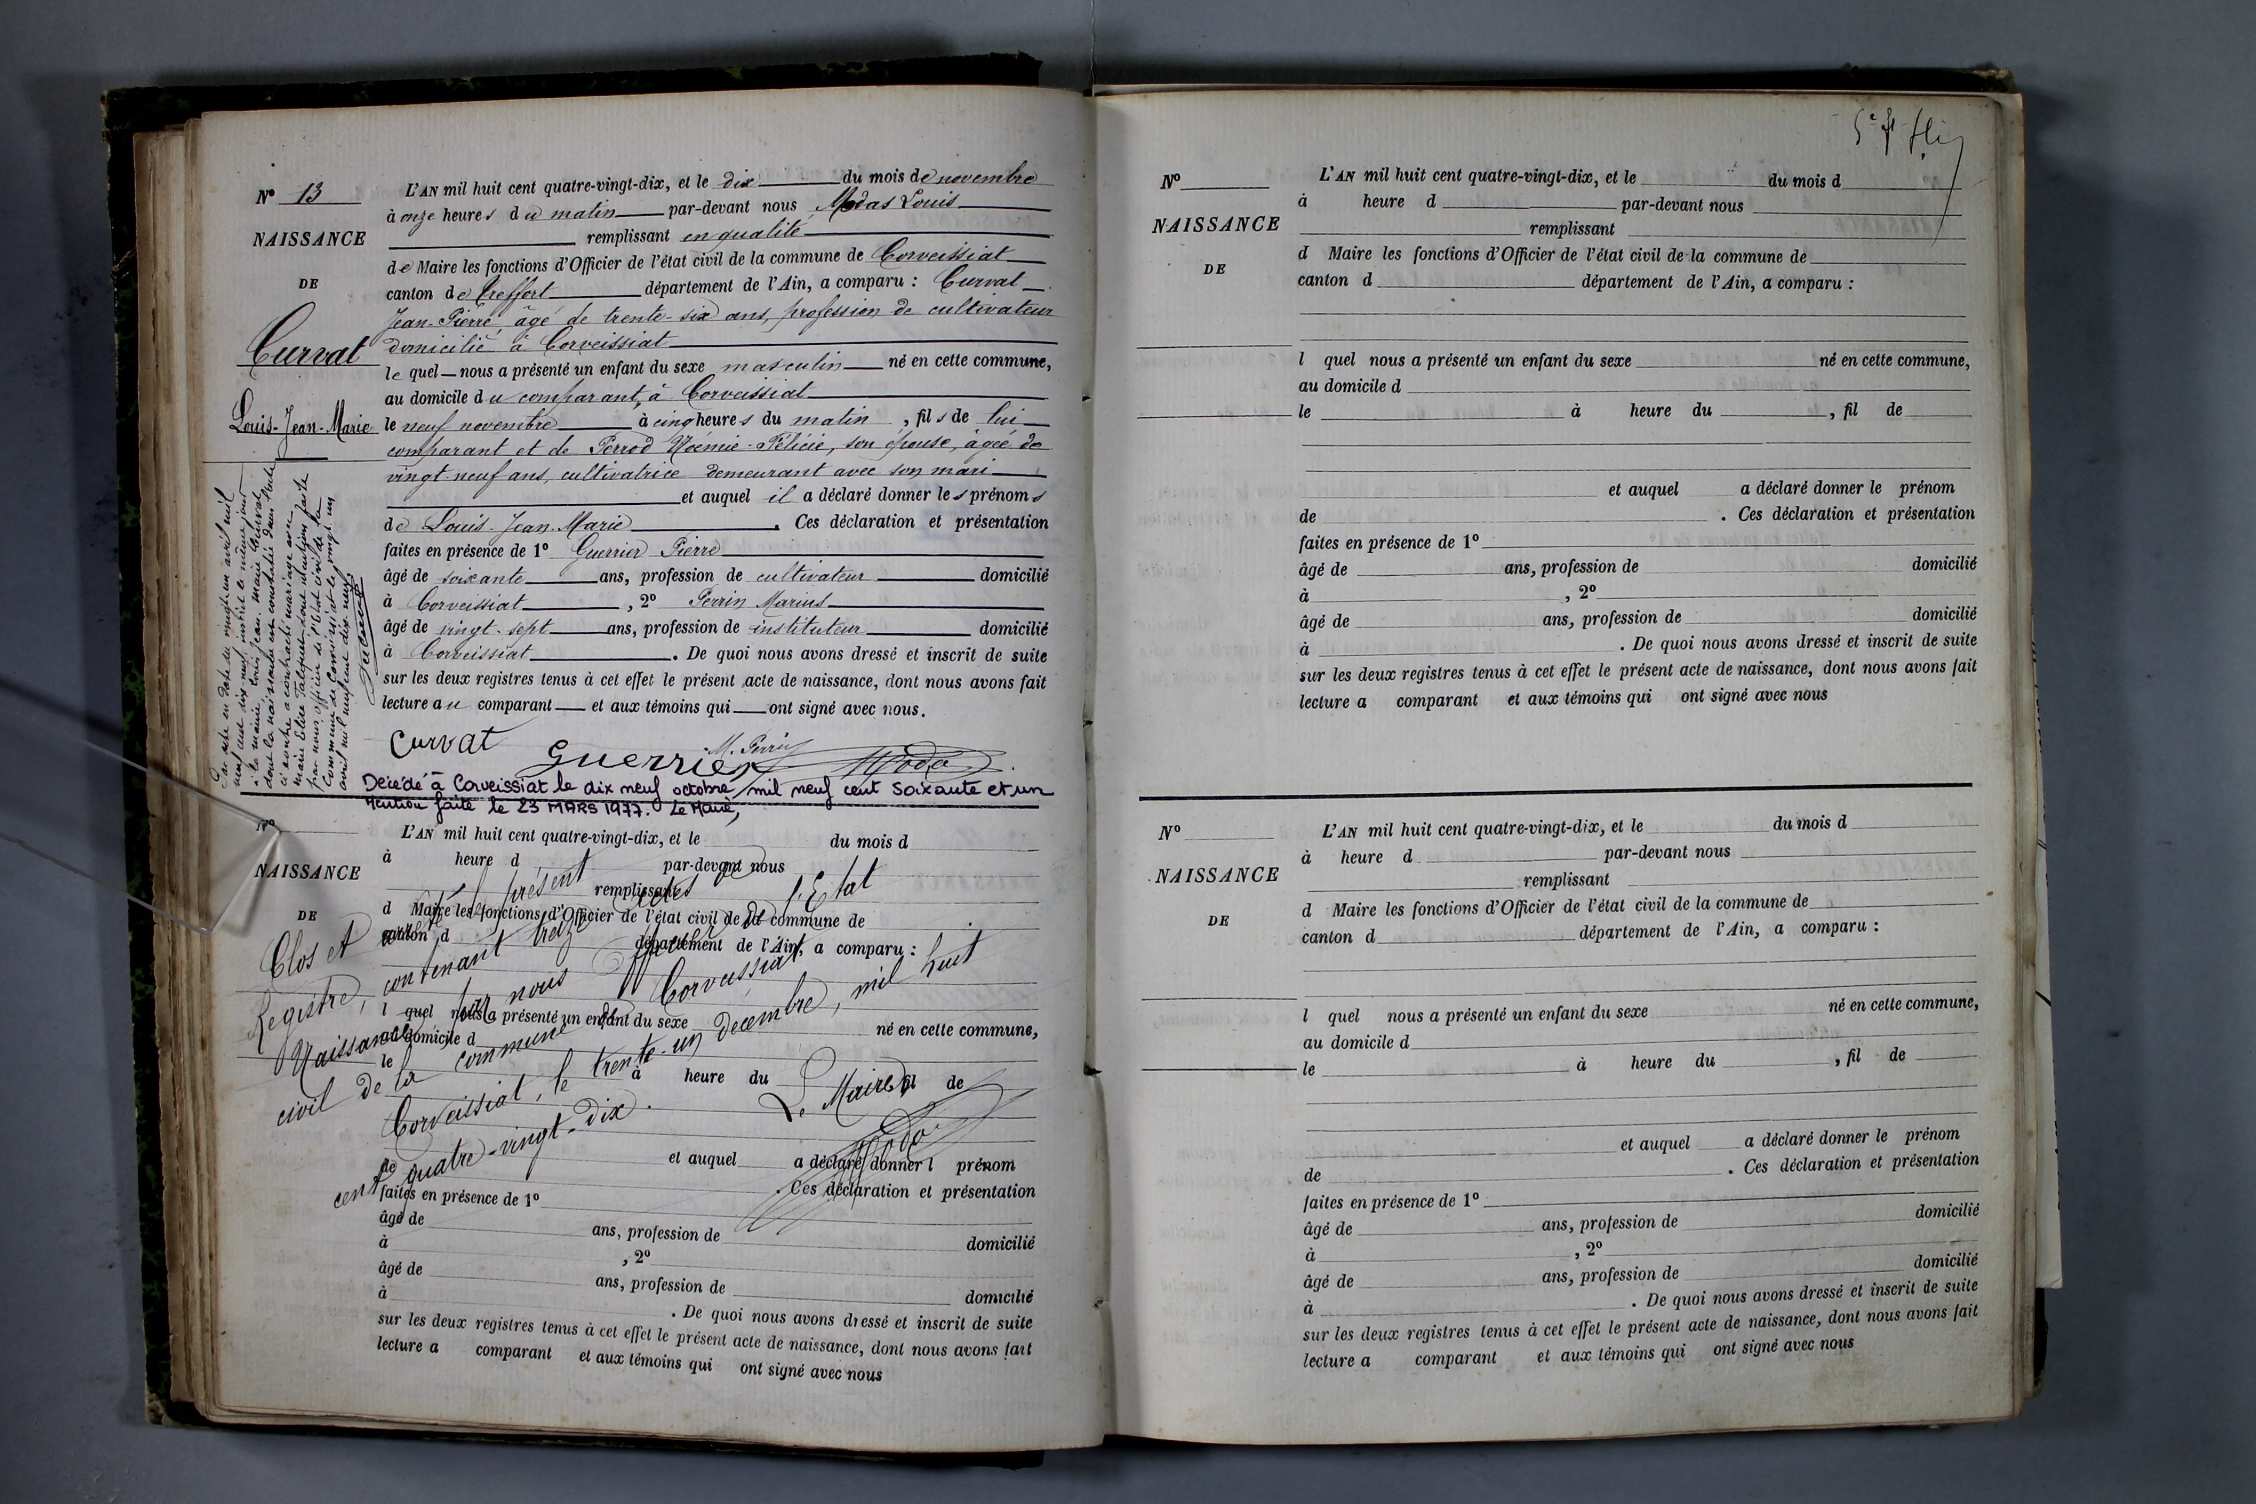 N° 13
NAISSANCE
DE
Curvat
Louis-Jean-Marie
L'AN mil huit cent quatre-vingt-dix, et le dix du mois de novembre
à onze heures du matin par-devant nous Modas Louis
remplissant en qualité
de Maire les fonctions d'Officier de l'état civil de la commune de Corveissiat
canton de Treffort département de l'Ain, a comparu : Curval
Jean-Pierre, âgé de trente-six ans, profession de cultivateur
domicilié à Corveissiat
le quel nous a présenté un enfant du sexe masculin né en cette commune,
au domicile du comparant, à Corveissiat
le neuf novembre à cinq heures du matin, fils de lui
comparant et de Perrod Noémie-Félicie, son épouse, âgée de
vingt-neuf ans, cultivatrice demeurant avec son mari
et auquel il a déclaré donner les prénoms
de Louis-Jean-Marie. Ces déclaration et présentation
faites en présence de 1° Guerrier Pierre
âgé de soixante ans, profession de cultivateur domicilié
à Corveissiat, 2° Perrin Marius
âgé de vingt-sept ans, profession de instituteur domicilié
à Corveissiat. De quoi nous avons dressé et inscrit de suite
sur les deux registres tenus à cet effet le présent acte de naissance, dont nous avons fait
lecture au comparant et aux témoins qui ont signé avec nous.
Curvat Guerrier M. Perrin Moda
Par acte en date du vingt-un avril mil
neuf cent dix-neuf, inscrit le même jour
à la mairie, Louis Jean Marie Curvat
dont la naissance est constatée dans l'acte
ci contre a contracté mariage avec
Marie Elise
par nous officier de l'Etat civil de la
commune de Corveissiat le vingt-un
avril mil neuf cent dix neuf
Décédé à Corveissiat le dix neuf octobre mil neuf cent soixante et un
Mention faite le 23 MARS 1977. Le Maire,
N°
NAISSANCE
DE
L'AN mil huit cent quatre-vingt-dix, et le du mois d
à heure d par-devant nous
remplissant
d Maire les fonctions d'Officier de l'état civil de la commune de
canton d département de l'Ain, a comparu :
l quel nous a présenté un enfant du sexe né en cette commune,
au domicile d
le à heure du , fil de
et auquel a déclaré donner l prénom
de . Ces déclaration et présentation
faites en présence de 1°
âgé de ans, profession de domicilié
à , 2°
âgé de ans, profession de domicilié
à . De quoi nous avons dressé et inscrit de suite
sur les deux registres tenus à cet effet le présent acte de naissance, dont nous avons fait
lecture a comparant et aux témoins qui ont signé avec nous
Clos et arrêté le présent
Registre, contenant treize actes de
Naissance, par nous Officier de l'Etat
civil de la commune de Corveissiat,
Corveissiat, le trente-un décembre, mil huit
cent quatre-vingt-dix.
Le Maire
Moda
N°
NAISSANCE
DE
L'AN mil huit cent quatre-vingt-dix, et le du mois d
à heure d par-devant nous
remplissant
d Maire les fonctions d'Officier de l'état civil de la commune de
canton d département de l'Ain, a comparu :
l quel nous a présenté un enfant du sexe né en cette commune,
au domicile d
le à heure du , fil de
et auquel a déclaré donner le prénom
de . Ces déclaration et présentation
faites en présence de 1°
âgé de ans, profession de domicilié
à , 2°
âgé de ans, profession de domicilié
à . De quoi nous avons dressé et inscrit de suite
sur les deux registres tenus à cet effet le présent acte de naissance, dont nous avons fait
lecture a comparant et aux témoins qui ont signé avec nous
N°
NAISSANCE
DE
L'AN mil huit cent quatre-vingt-dix, et le du mois d
à heure d par-devant nous
remplissant
d Maire les fonctions d'Officier de l'état civil de la commune de
canton d département de l'Ain, a comparu :
l quel nous a présenté un enfant du sexe né en cette commune,
au domicile d
le à heure du , fil de
et auquel a déclaré donner le prénom
de . Ces déclaration et présentation
faites en présence de 1°
âgé de ans, profession de domicilié
à , 2°
âgé de ans, profession de domicilié
à . De quoi nous avons dressé et inscrit de suite
sur les deux registres tenus à cet effet le présent acte de naissance, dont nous avons fait
lecture a comparant et aux témoins qui ont signé avec nous